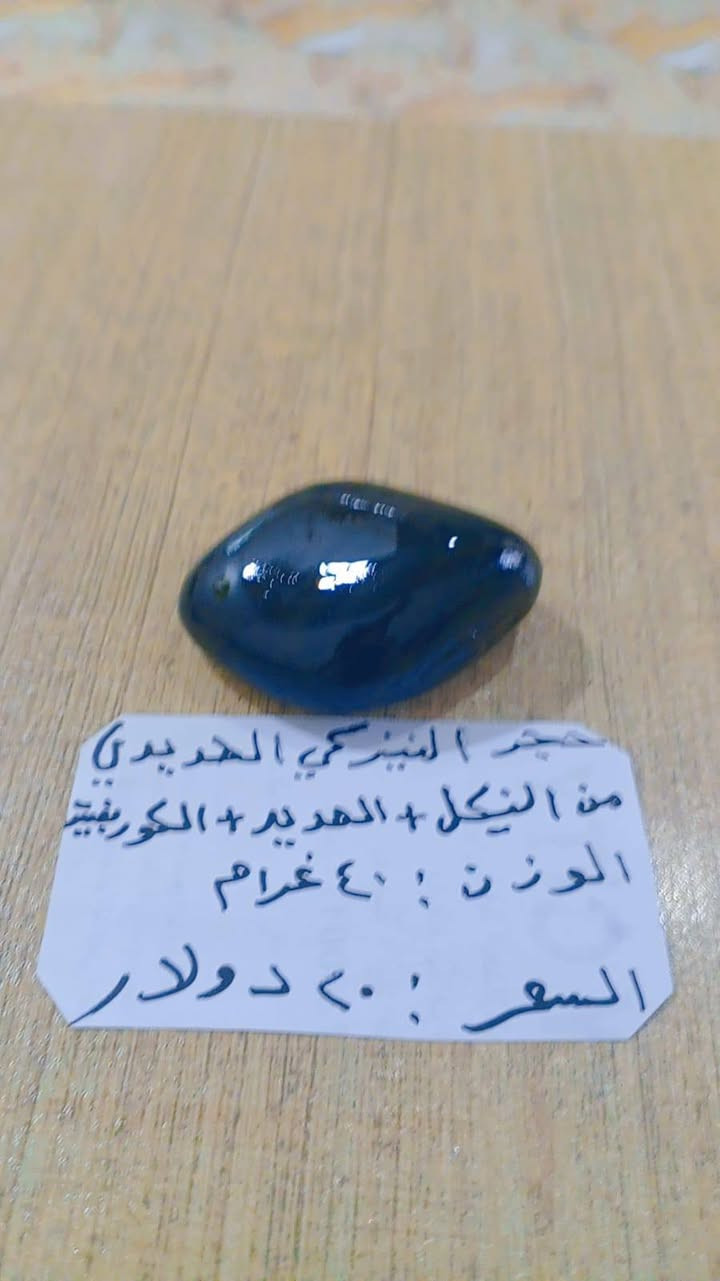 حجر النيزكي الحديدي
من النيكل + الحديد + الكوريفيت
الوزن : ٤٠ غرام
السعر : ٢٠ دولار